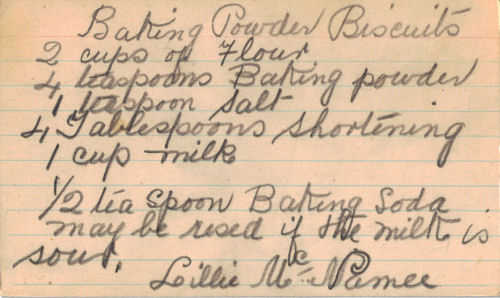 Baking Powder Biscuits
2 cups of Flour
4 teaspoons Baking powder
1 teaspoon salt
4 Tablespoons shortening
1 cup milk
1/2 tea spoon Baking Soda
may be used if the milk is
sour.
Lillie Mc Namee